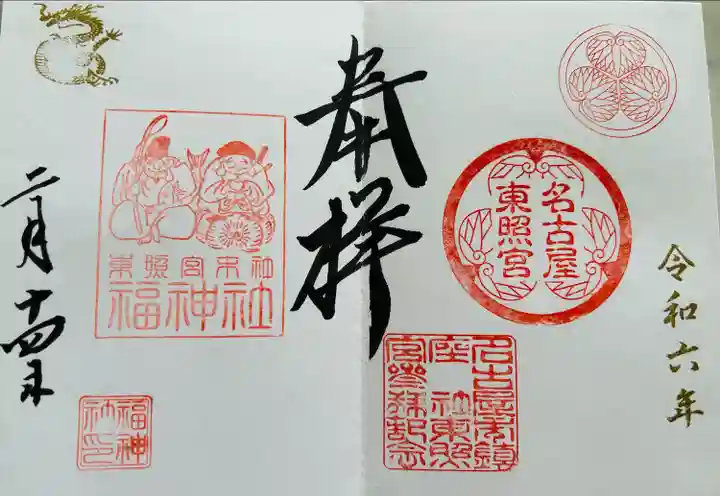 令和六年
名古屋
東照宮
名古屋市鎮
座 社東照
宮参拝記念
奉拝
東照宮末社
福神社
福神
社印
二月十四日